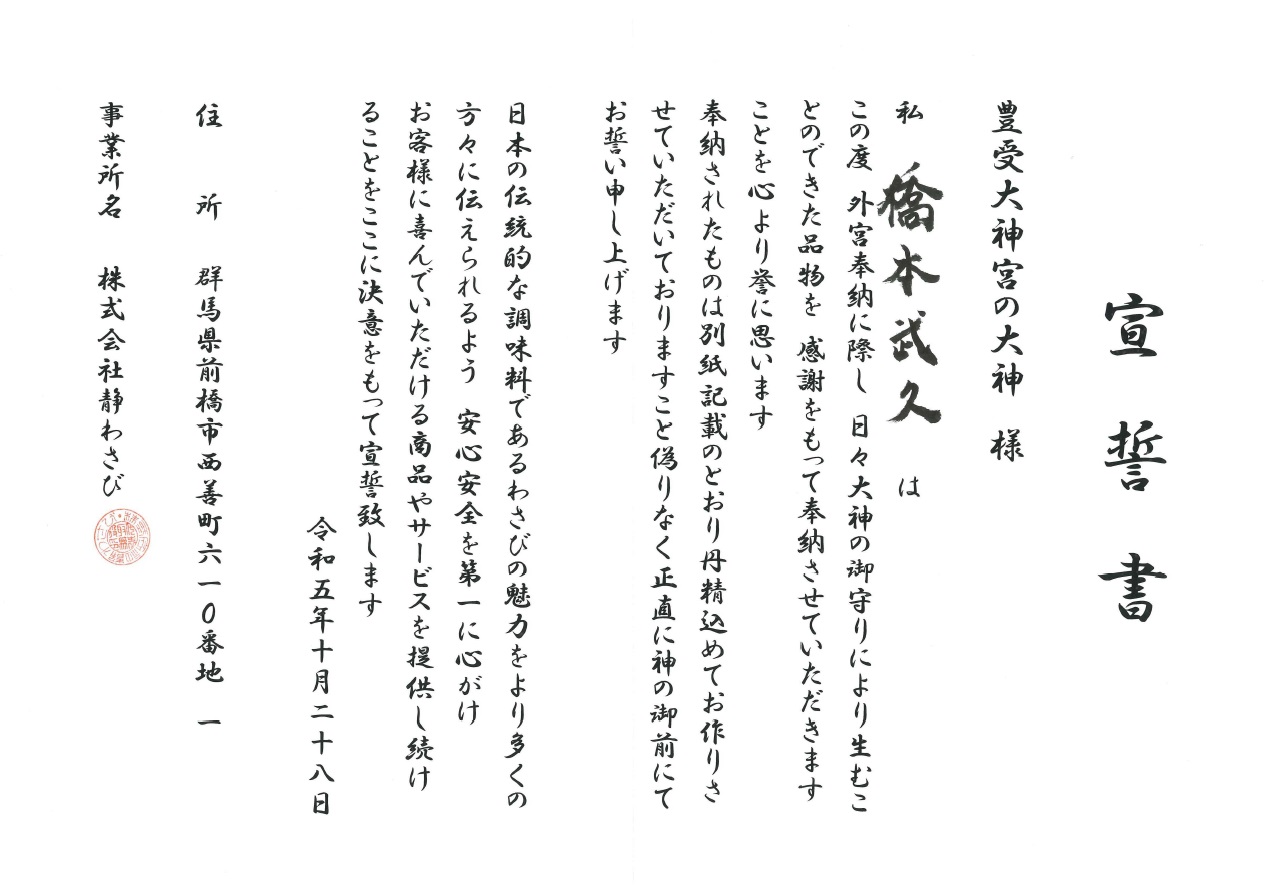 宣誓書
豊受大神宮の大神 様
私 橋本武久 は
この度 外宮奉納に際し 日々大神の御守りにより生むこ
とのできた品物を 感謝をもって奉納させていただきます
ことを心より誉に思います
奉納されたものは別紙記載のとおり丹精込めてお作りさ
せていただいておりますこと偽りなく正直に神の御前にて
お誓い申し上げます
日本の伝統的な調味料であるわさびの魅力をより多くの
方々に伝えられるよう 安心安全を第一に心がけ
お客様に喜んでいただける商品やサービスを提供し続け
ることをここに決意をもって宣誓致します
令和五年十月二十八日
住 所 群馬県前橋市西善町六一0番地 一
事業所名 株式会社静わさび